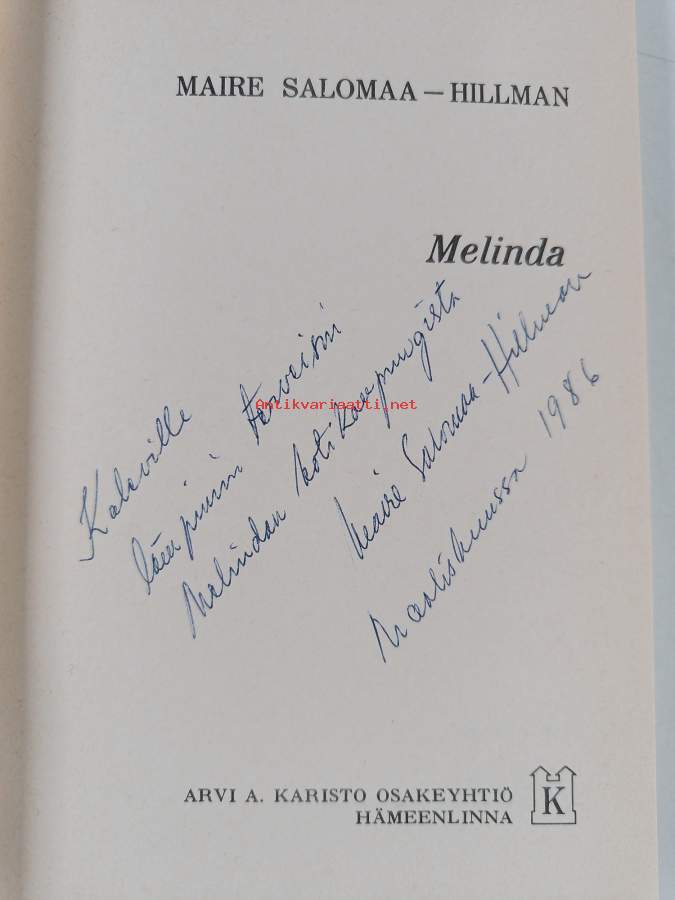 MAIRE SALOMAA – HILLMAN
Melinda
Kaleville
lämpimin terveisin
Melindan kotikaupungista
Maire Salomaa-Hillman
Maaliskuussa 1986
Antikvariaatti.net
ARVI A. KARISTO OSAKEYHTIÖ
HÄMEENLINNA
K